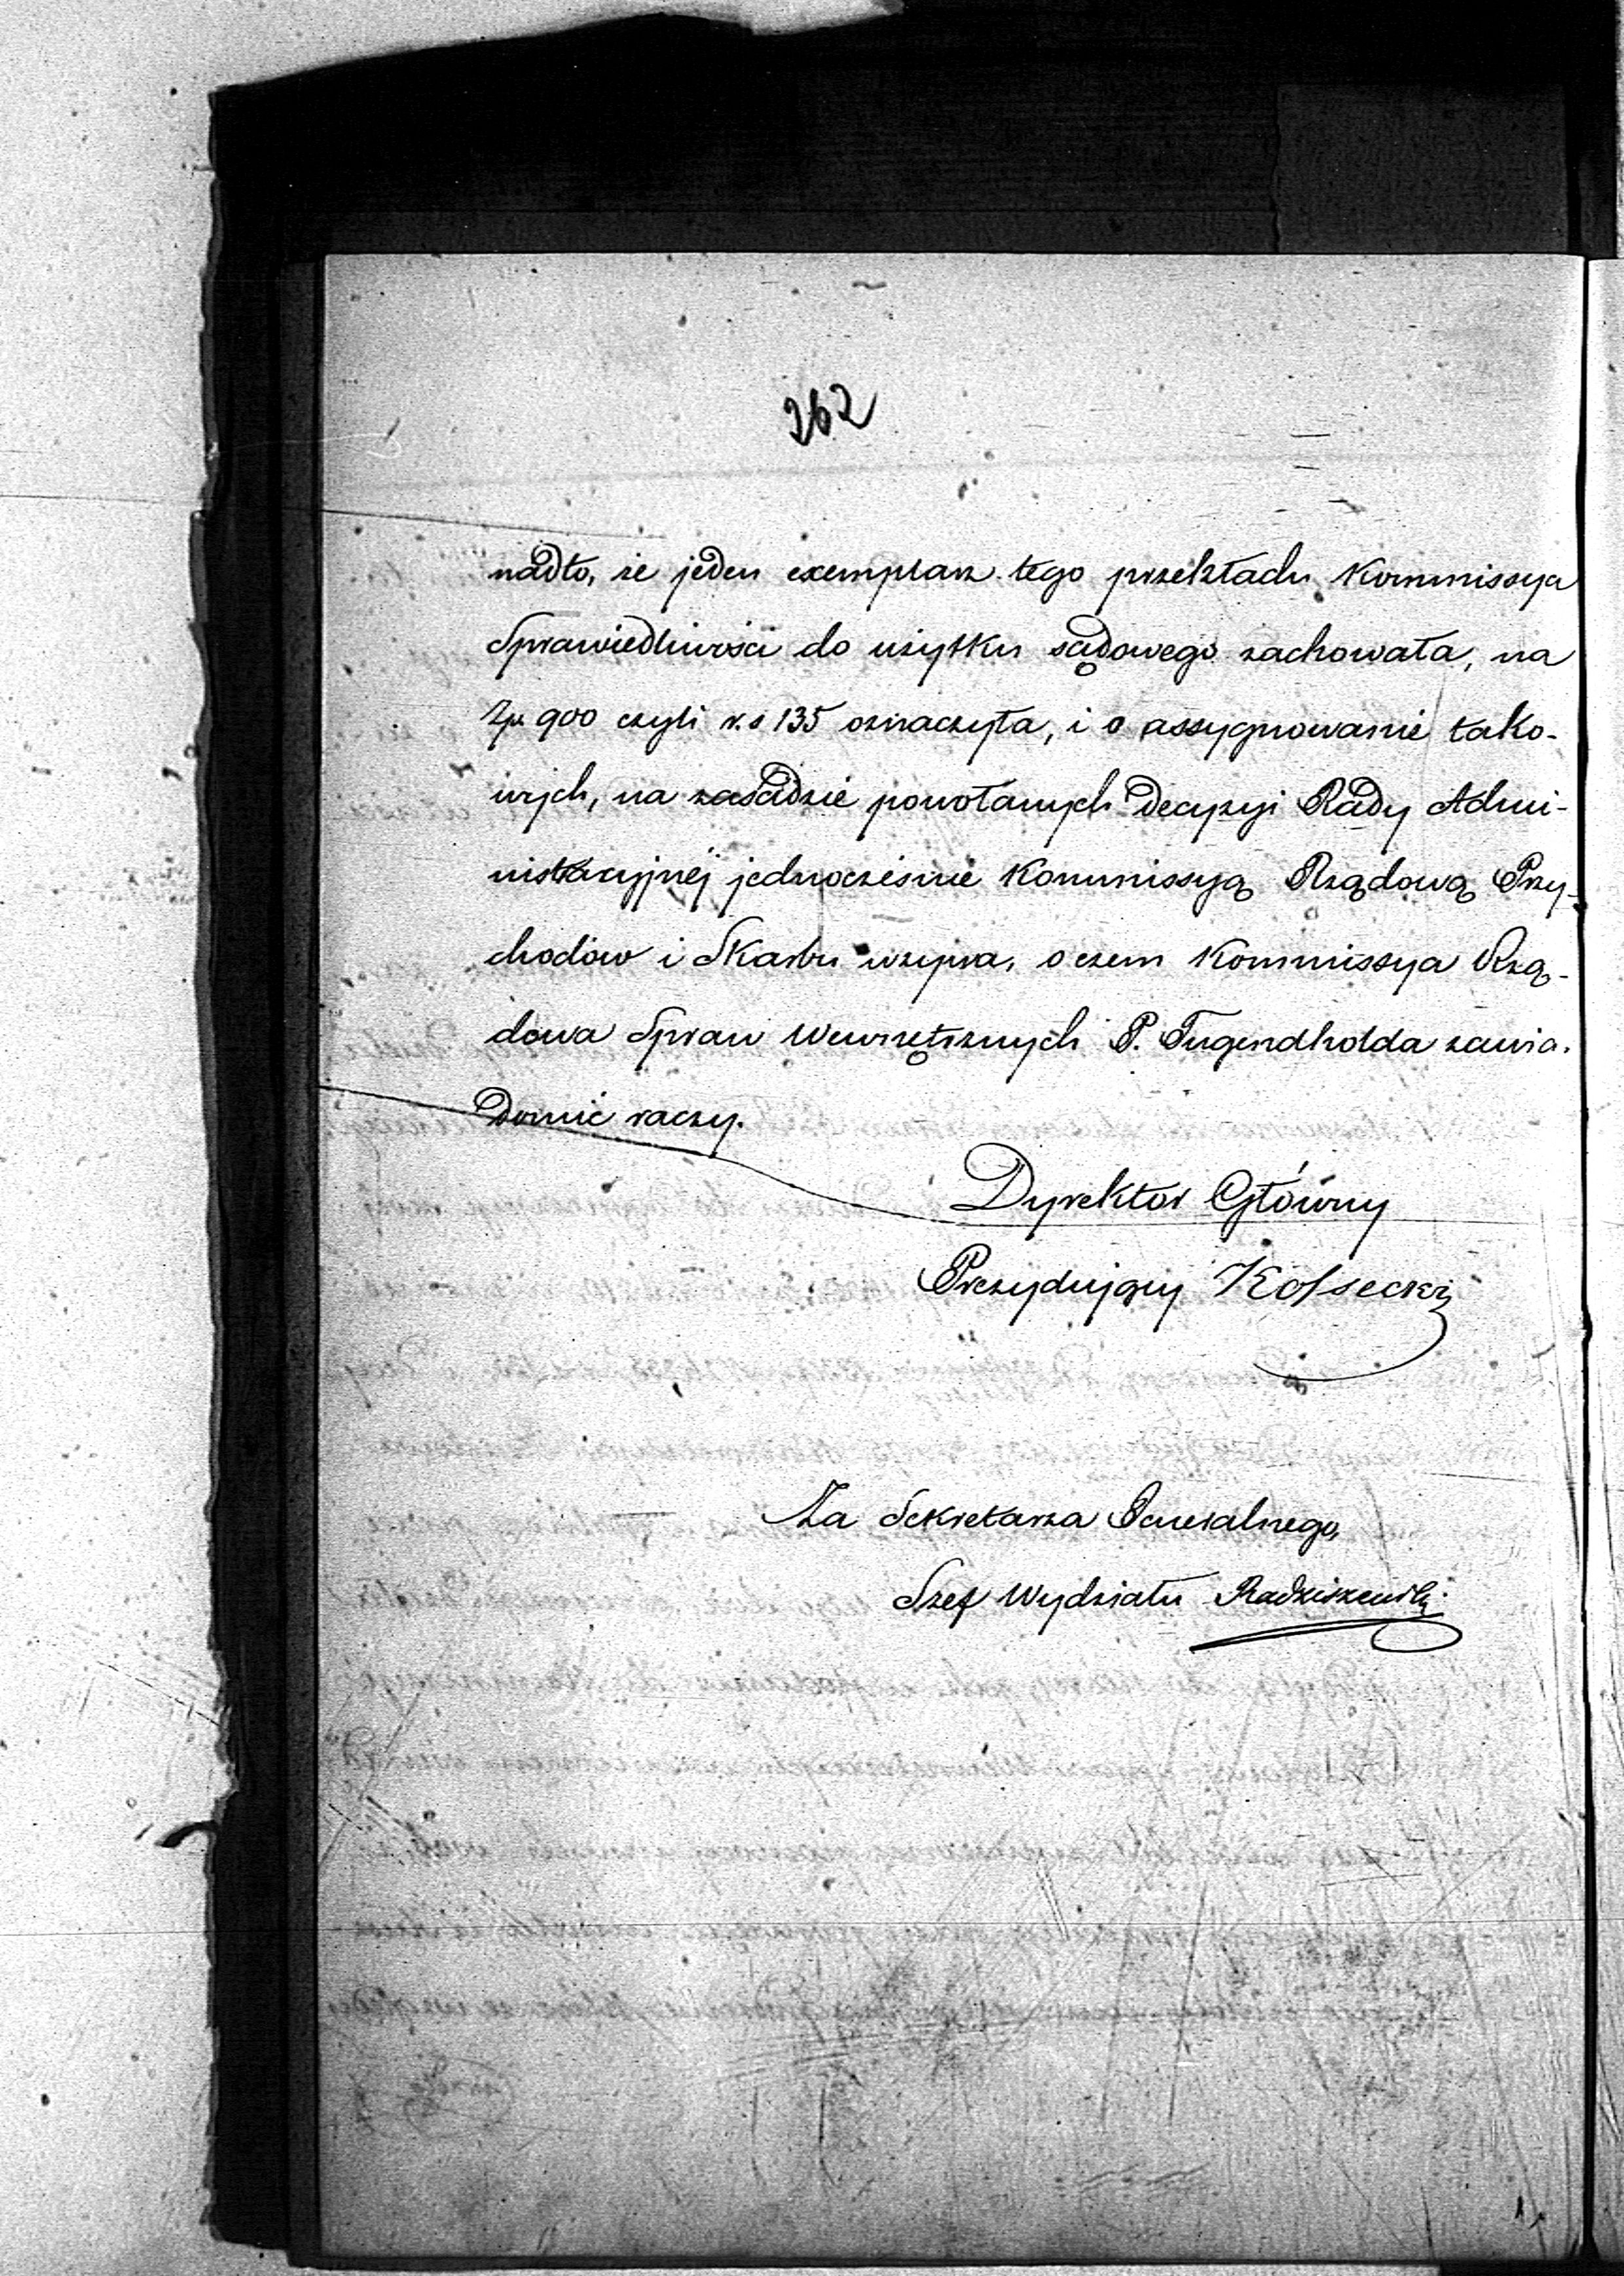 262
nadto, że jeden exemplarz tego przekładu Kommissya
Sprawiedliwości do użytku sądowego zachowała, na
Zp 900 czyli r.s 135 oznaczyła, i o assygnowanie tako-
wych, na zasadzie powołanych decyzyi Rady Admi-
nistracyjnéj jednocześnie Kommissyą Rządową Przy-
chodów i Skarbu wzywa, o czem Kommissya Rzą-
dowa Spraw Wewnętrznych P. Tugendholda zawia-
domić raczy.
Dyrektor Główny
Prezydujący Kossecki
Za Sekretarza Generalnego,
Szef Wydziału Radziszewski